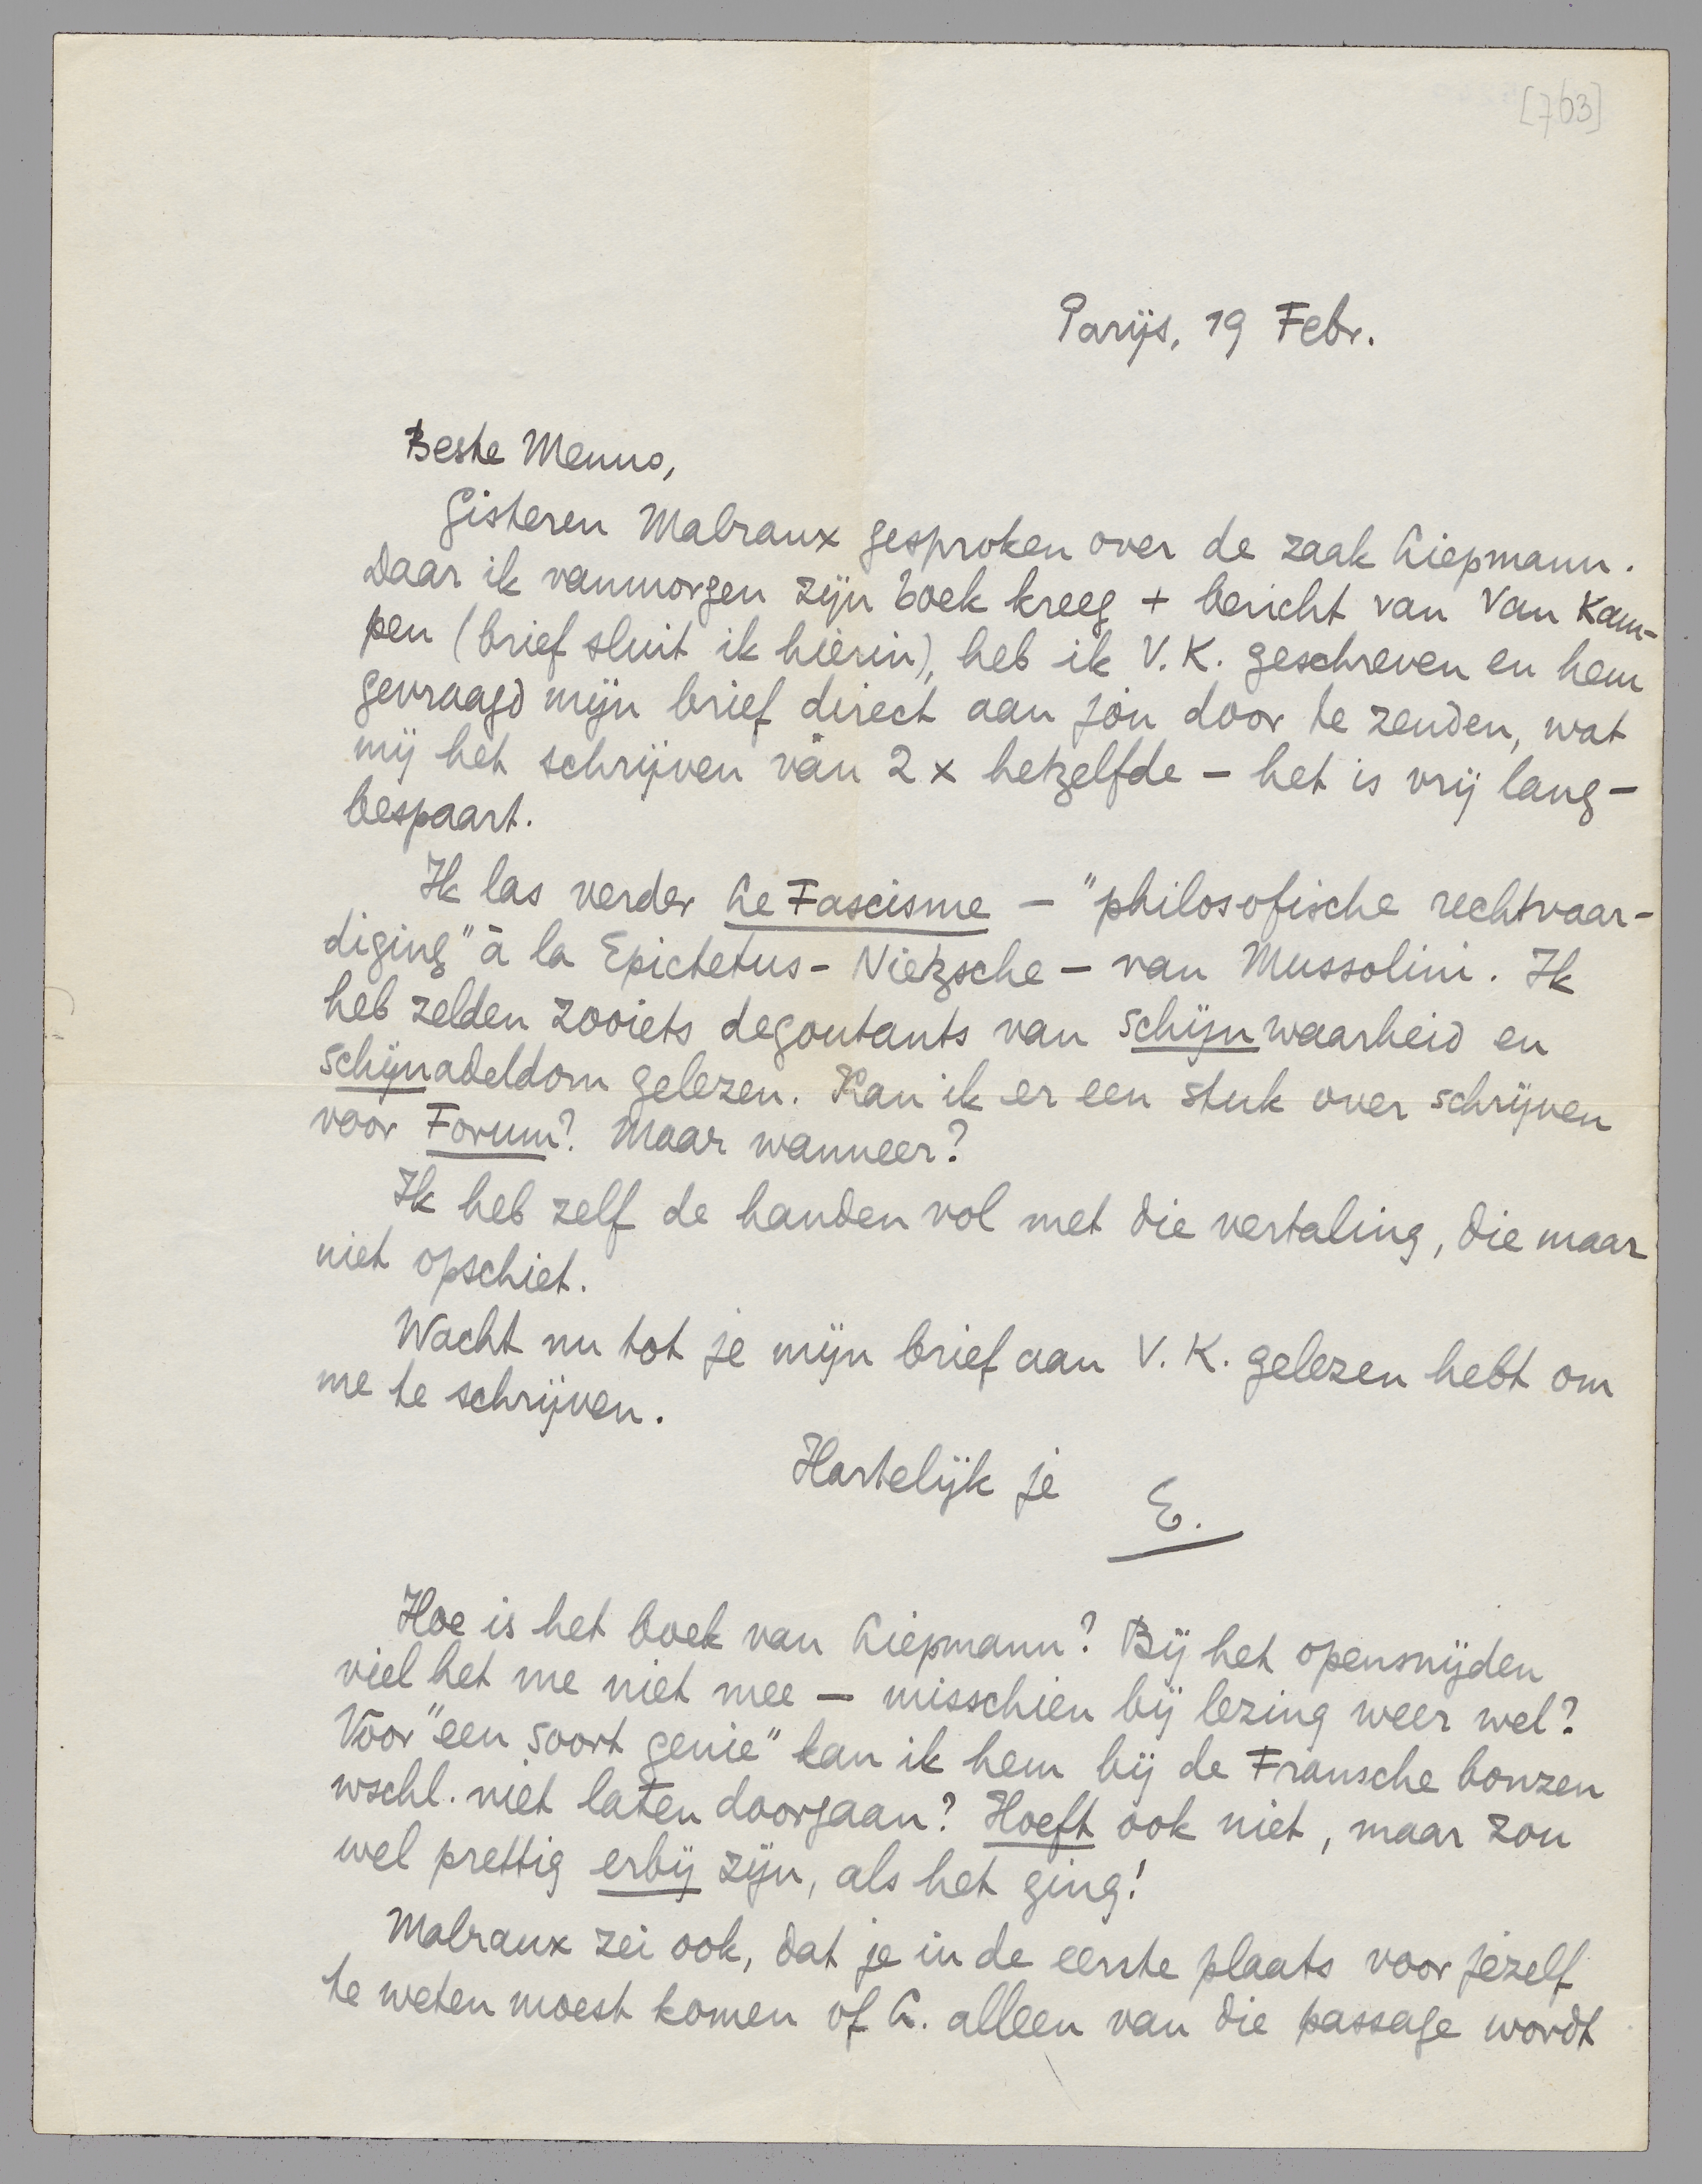 [763]
Parijs, 19 Febr.
Beste Menno,
Gisteren Malraux gesproken over de zaak Liepmann.
Daar ik vanmorgen zijn boek kreeg + bericht van Van Kam-
pen (brief sluit ik hierin), heb ik V.K. geschreven en hem
gevraagd mijn brief direct aan jou door te zenden, wat
mij het schrijven van 2 x hetzelfde – het is vrij lang –
bespaart.
Ik las verder Le Fascisme – "philosofische rechtvaar-
diging" à la Epictetus-Nietzsche – van Mussolini. Ik
heb zelden zooiets degoutants van schijnwaarheid en
schijnadeldom gelezen. Kan ik er een stuk over schrijven
voor Forum? Maar wanneer?
Ik heb zelf de handen vol met die vertaling, die maar
niet opschiet.
Wacht nu tot je mijn brief aan V.K. gelezen hebt om
me te schrijven.
Hartelijk je
E.
Hoe is het boek van Liepmann? Bij het opensnijden
viel het me niet mee – misschien bij lezing weer wel?
Vóór "een soort genie" kan ik hem bij de Fransche bonzen
wschl. niet laten doorgaan? Hoeft ook niet, maar zou
wel prettig erbij zijn, als het ging!
Malraux zei ook, dat je in de eerste plaats voor jezelf
te weten moest komen of L. alleen van die passage wordt